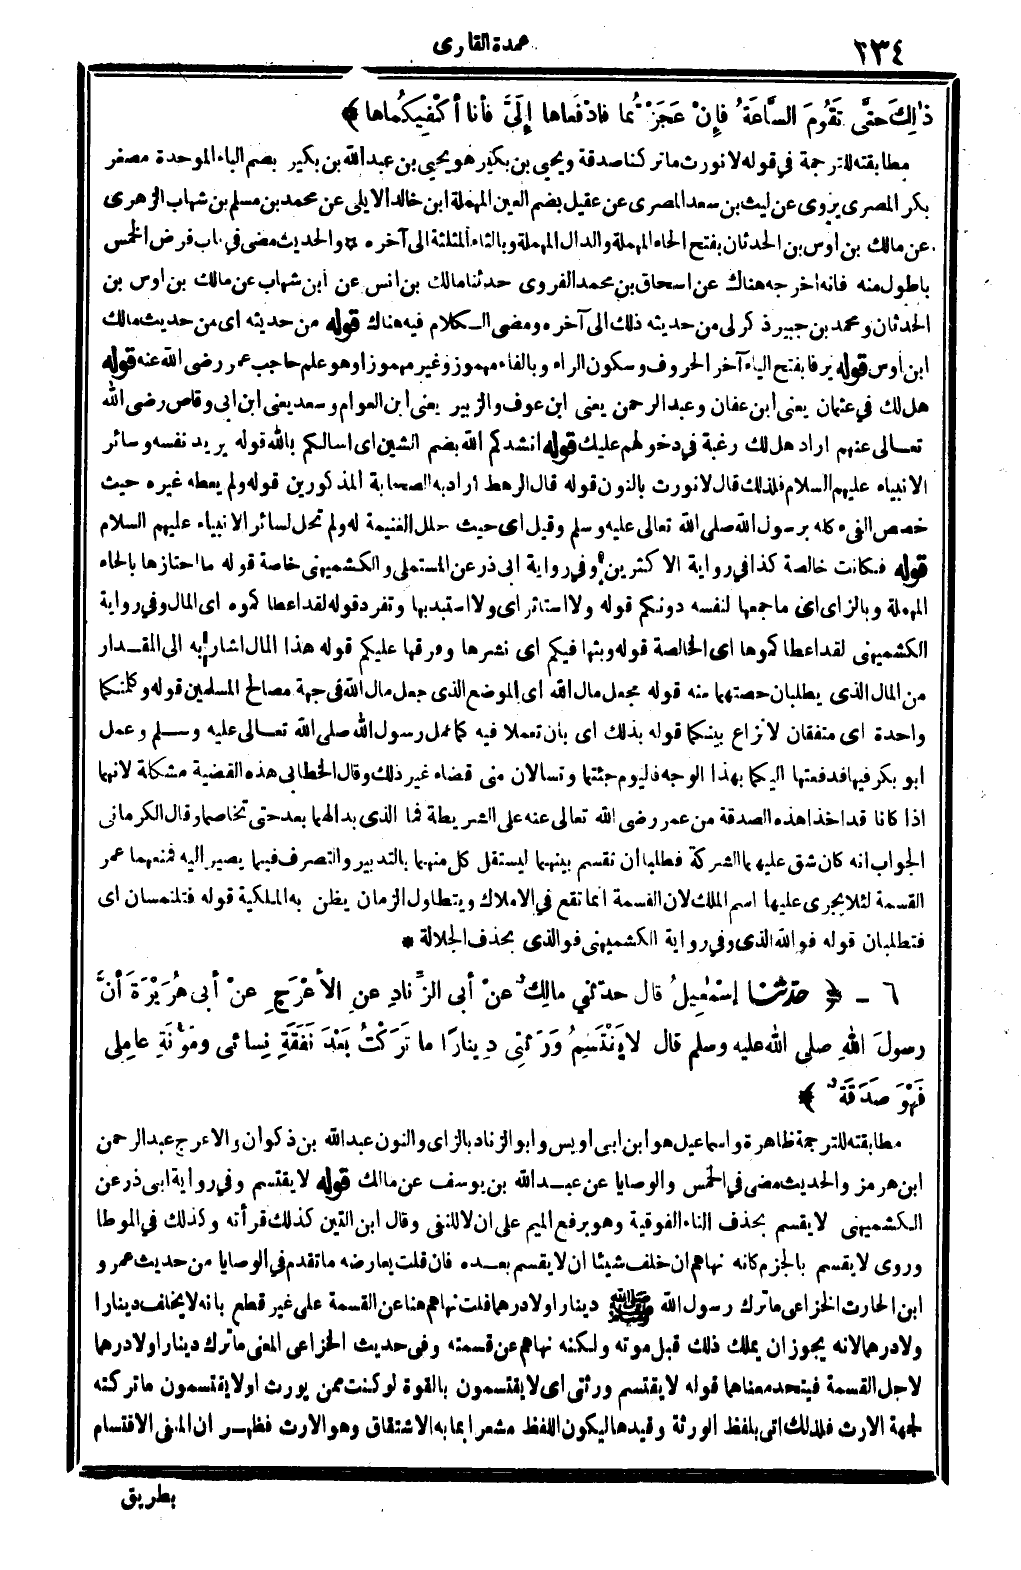 ٢٣٤
عمدة القارى
ذٰلِكَ حتَّى تَقُومَ السَّاعَةُ فإِنْ عَجَزْتُما فادْفَعاها إلَىَّ فأنا أكْفِيكُماها ﴾
مطابقته للترجمة في قوله لا نورث ما تركنا صدقة ويحيى بن بكير هو يحيى بن عبد الله بن بكير بضم الباء الموحدة مصغر
بكر المصرى يروى عن ليث بن سعد المصرى عن عقيل بضم العين المهملة ابن خالد الايلى عن محمد بن مسلم بن شهاب الزهرى
عن مالك بن اوس بن الحدثان بفتح الحاء المهملة والدال المهملة وبالثاء المثلثة الى آخره * والحديث مضى في باب فرض الخمس
باطول منه فانه اخرجه هناك عن اسحاق بن محمد الفروى حدثنا مالك بن انس عن ابن شهاب عن مالك بن اوس بن
الحدثان ومحمد بن جبير ذكر لى من حديثه ذلك الى آخره ومضى الكلام فيه هناك قوله من حديثه اى من حديث مالك
ابن اوس قوله يرفا بفتح الياء آخر الحروف وسكون الراء وبالفاء مهموز وغير مهموز او هو علم حاجب عمر رضى الله عنه قوله
هل لك في عثمان يعنى ابن عفان وعبد الرحمن يعنى ابن عوف والزبير يعنى ابن العوام وسعد يعنى ابن ابى وقاص رضى الله
تعالى عنهم اراد هل لك رغبة في دخولهم عليك قوله انشدكم الله بضم الشين اى اسالكم بالله قوله يريد نفسه وسائر
الانبياء عليهم السلام فلذلك قال لا نورث بالنون قوله قال الرهط اراد به الصحابة المذكورين قوله ولم يعطه غيره حيث
خصص الفىء كله برسول الله صلى الله تعالى عليه وسلم وقيل اى حيث حلل الغنيمة له ولم تحل لسائر الانبياء عليهم السلام
قوله فكانت خالصة كذا في رواية الاكثرين وفي رواية ابى ذر عن المستملى والكشميهنى خاصة قوله ما احتازها بالحاء
المهملة وبالزاى اى ما جمعها لنفسه دونكم قوله ولا استاثر اى ولا استبد بها وتفرد قوله لقد اعطاكموه اى المال وفي رواية
الكشميهنى لقد اعطاكموها اى الخالصة قوله وبثها فيكم اى نشرها وفرقها عليكم قوله هذا المال اشار به الى المقدار
من المال الذى يطلبان حصتهما منه قوله مجعل مال الله اى الموضع الذى جعل مال الله في جهة مصالح المسلمين قوله وكلمتكما
واحدة اى متفقان لا نزاع بينكما قوله بذلك اى بان تعملا فيه كما عمل رسول الله صلى الله تعالى عليه وسلم وعمل
ابو بكر فيها فدفعتها اليكما بهذا الوجه فاليوم جئتما وتسالان منى قضاء غير ذلك وقال الخطابى هذه القضية مشكلة لانهما
اذا كانا قد اخذا هذه الصدقة من عمر رضى الله تعالى عنه على الشريطة فما الذى بدالهما بعد حتى تخاصما وقال الكرمانى
الجواب انه كان شق عليهما الشركة فطلبا ان تقسم بينهما ليستقل كل منهما بالتدبير والتصرف فيما يصير اليه فمنعهما عمر
القسمة لئلا يجرى عليها اسم الملك لان القسمة انما تقع في الاملاك ويتطاول الزمان يظن به الملكية قوله فتلتمسان اى
فتطلبان قوله فو الله الذى وفي رواية الكشميهنى فوالذى بحذف الجلالة *
٦ - ﴿ حدّثنا إسْمٰعِيلُ قال حدّثني مالِكٌ عنْ أبى الزِّنادِ عنِ الأعْرَجِ عنْ أبى هُرَيْرَةَ أنَّ
رسولَ اللهِ صلى الله عليه وسلم قال لا يَقْتَسِمُ وَرَثَتِى دِينارًا ما تَرَكْتُ بَعْدَ نَفَقَةِ نِسائى ومَؤُنَةِ عامِلِى
فَهْوَ صَدَقَةٌ ﴾
مطابقته للترجمة ظاهرة واسماعيل هو ابن ابى اويس وابو الزناد بالزاى والنون عبد الله بن ذكوان والاعرج عبد الرحمن
ابن هرمز والحديث مضى في الخمس والوصايا عن عبد الله بن يوسف عن مالك قوله لا يقتسم وفي رواية ابى ذر عن
الكشميهنى لا يقسم بحذف التاء الفوقية وهو برفع الميم على ان لا للنفى وقال ابن التين كذلك قرأته وكذلك في الموطا
وروى لا يقسم بالجزم كانه نهاهم ان خلف شيئا ان لا يقسم بعده فان قلت يعارضه ما تقدم في الوصايا من حديث عمرو
ابن الحارث الخزاعى ماترك رسول الله ﷺ دينارا ولا درهما قلت نهاهم هنا عن القسمة على غير قطع بانه لا يخلف دينارا
ولا درهما لانه يجوز ان يملك ذلك قبل موته ولكنه نهاهم عن قسمته وفي حديث الخزاعى المعنى ماترك دينارا ولا درهما
لاجل القسمة فيتحد معناهما قوله لا يقتسم ورثتى اى لا يقتسمون بالقوة لو كنت ممن يورث او لا يقتسمون ما تركته
لجهة الارث فلذلك اتى بلفظ الورثة وقيدها ليكون اللفظ مشعرا بما به الاشتقاق وهو الارث فظهر ان المنفى الاقتسام
بطريق